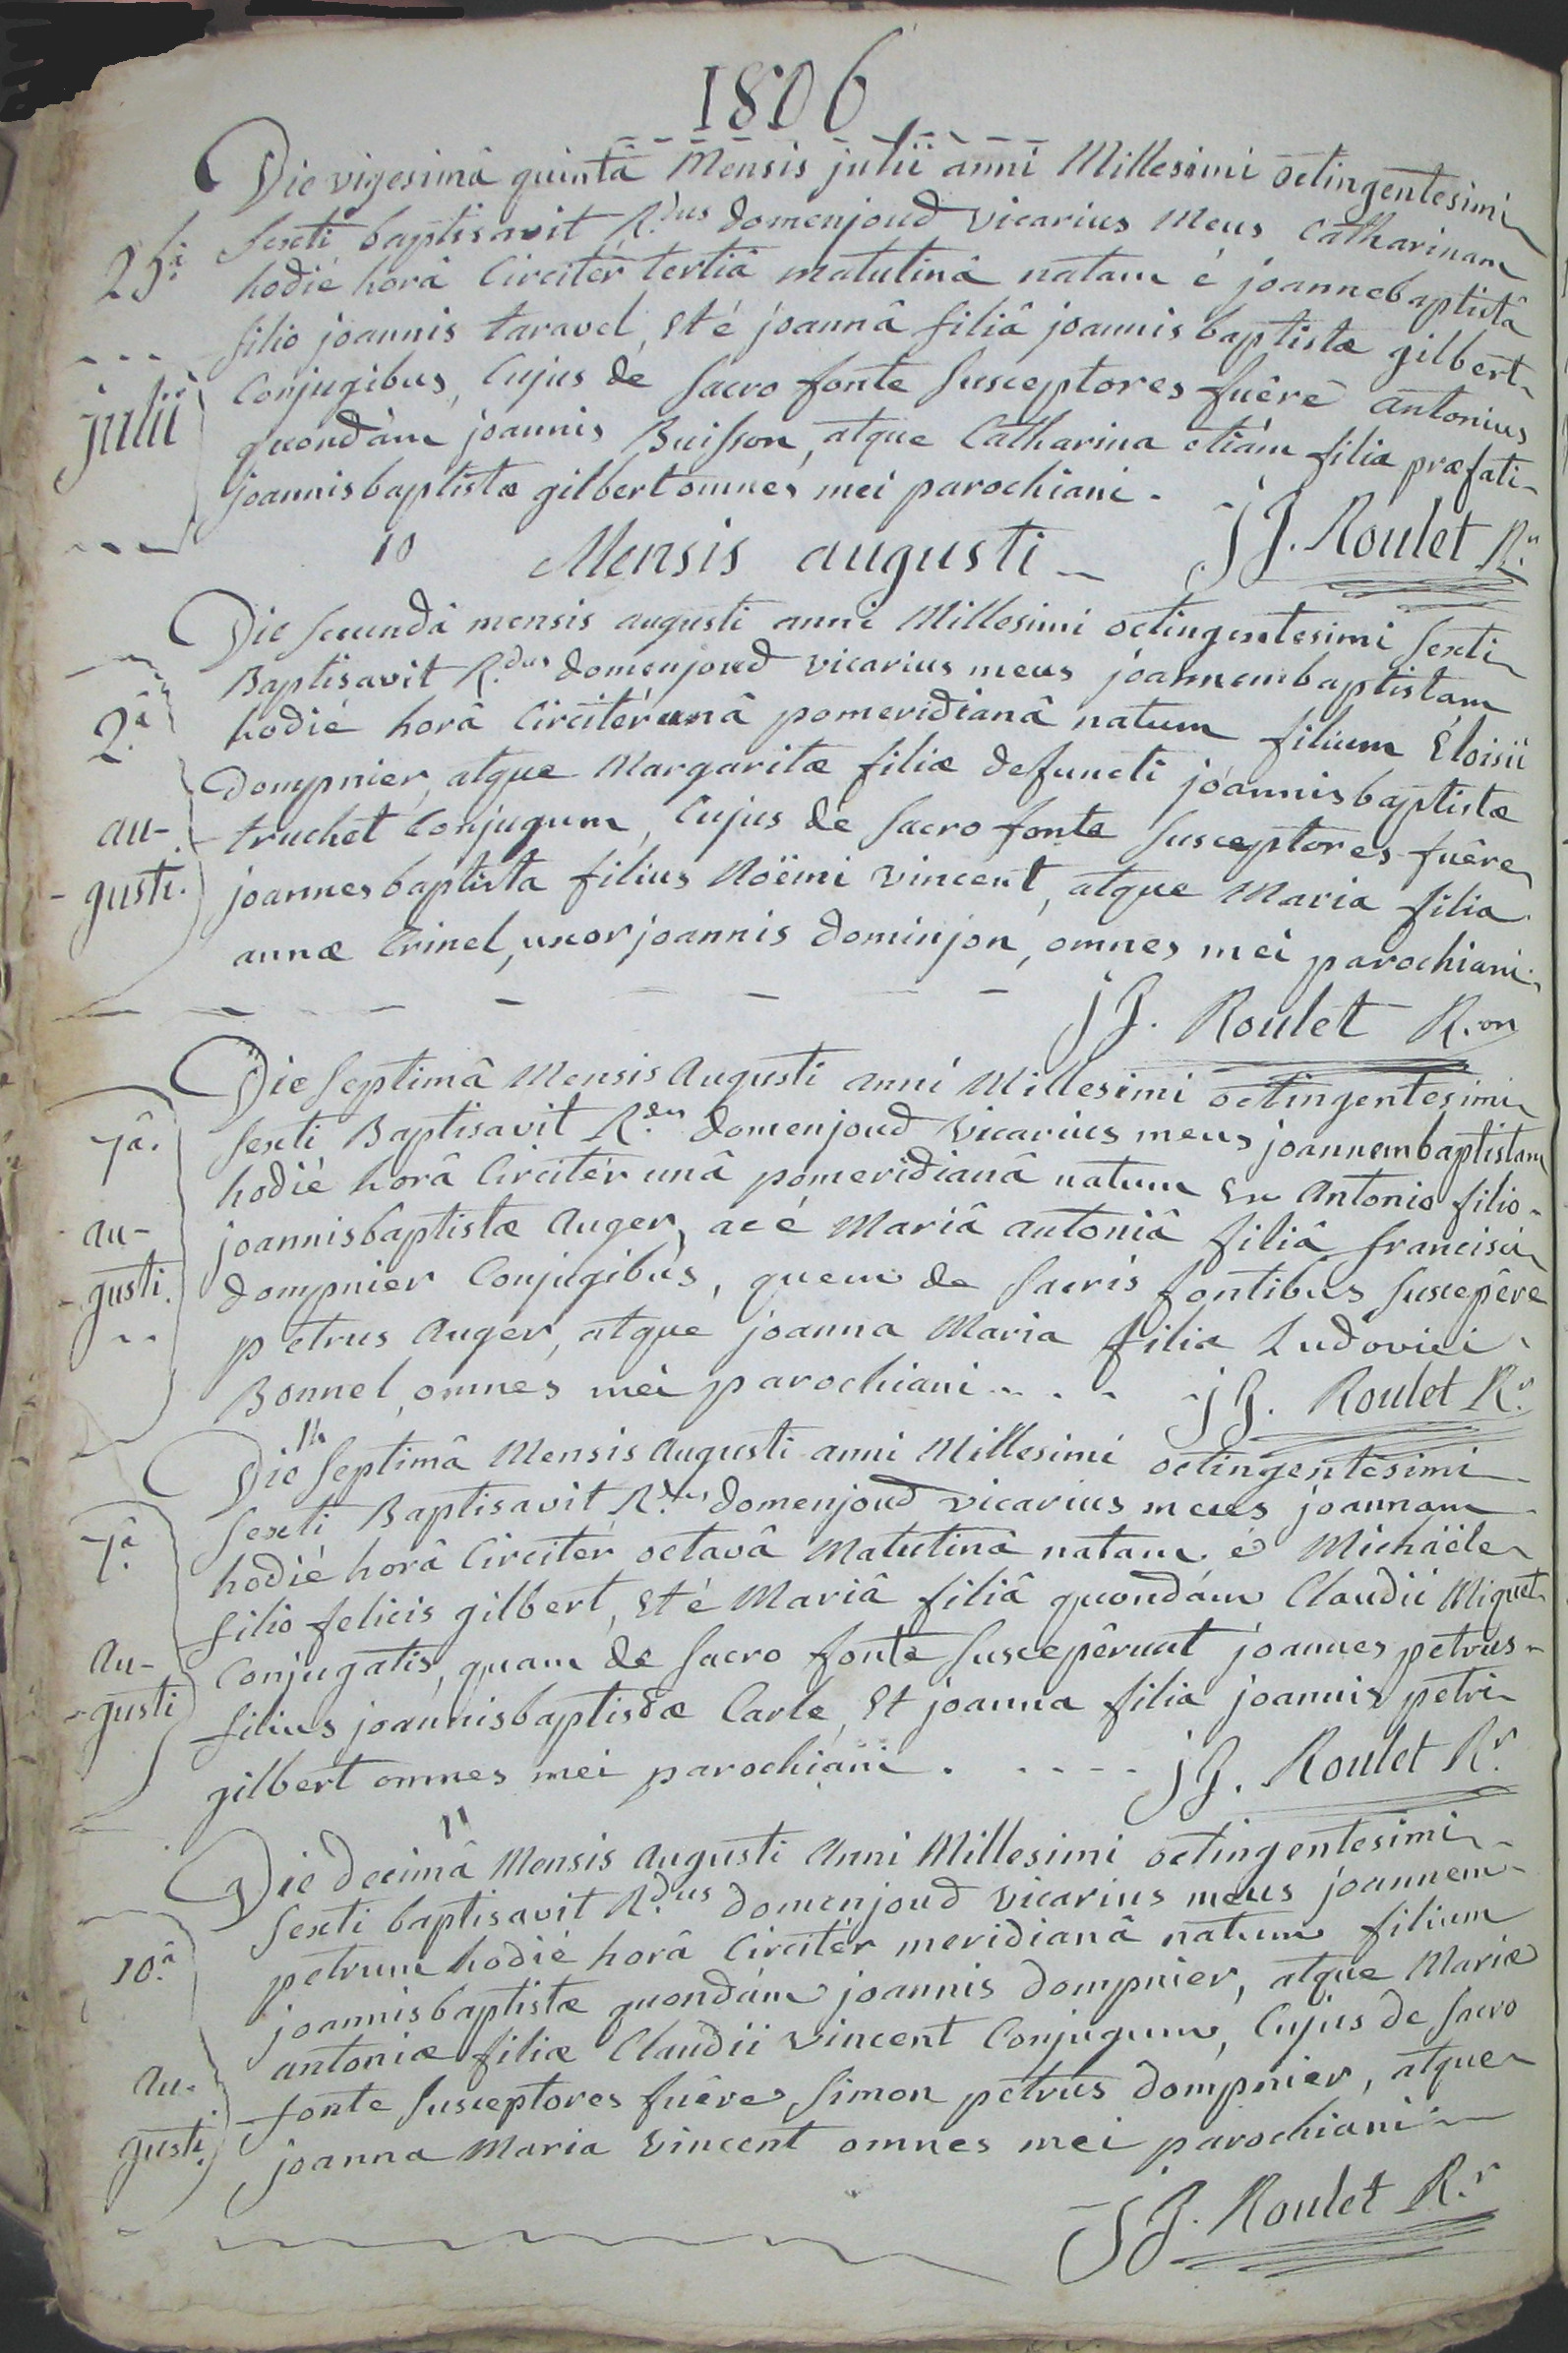 1806
Die vigesimâ quintâ Mensis julii anni Millesimi octingentesimi
sexti baptisavit R.dus domenjoud vicarius Meus Catharinam
25.a
hodié horâ Circitér tertiâ matutinâ natam é joannebaptistâ
filio joannis taravel, Et é joannâ filiâ joannis baptistæ gilbert
Conjugibus, Cujus de Sacro fonte Susceptores fuêre antonius
julii
quondàm joannis Buisson, atque Catharina etiám filia præfati
joannisbaptistæ gilbert omnes mei parochiani.
J J. Roulet R.r
10 Mensis augusti
Die Secundâ mensis augusti anni Millesimi octingentesimi Sexti
Baptisavit R.dus domenjoud vicarius meus joannembaptistam
2.â
hodié horâ Circitér unâ pomeridianâ natum filium Éloisii
dompnier, atque Margaritæ filiæ defuncti joannisbaptistæ
au-
truchet Conjugum, Cujus de Sacro fonte Susceptores fuêre
gusti.
joannesbaptista filius Noëmi Vincent, atque Maria filia
annæ Crinel, uxor joannis dominjon, omnes mei parochiani.
J J. Roulet R.or
Die Septimâ Mensis Augusti anni Millesimi octingentesimi
7â.
Sexti Baptisavit R.dus domenjoud Vicarius meus joannembaptistam
hodié horâ Circitér unâ pomeridianâ natum Ex Antonio filio
au-
joannisbaptistæ Auger, ac é Mariâ antoniâ filiâ francisci
gusti.
dompnier Conjugibus, quem de Sacris fontibus Suscepêre
petrus Auger, atque joanna Maria filia Ludovici
Bonnel, omnes mei parochiani....
J J. Roulet R.r
Die Septimâ Mensis Augusti anni Millesimi octingentesimi
7.â
Sexti Baptisavit R.dus domenjoud vicarius meus joannam
hodié horâ Circitér octavâ Matutinâ natam é Michäele
filio felicis gilbert, Et é Mariâ filiâ quondám Claudii Miguet
Au-
Conjugatis, quam de Sacro fonte Suscepêrunt joannes petrus
gusti
filius joannisbaptistæ Carle, Et joanna filia joannis petri
gilbert omnes mei parochiani.
J J. Roulet R.r
11
Die decimâ Mensis Augusti Anni Millesimi octingentesimi
Sexti baptisavit R.dus domenjoud vicarius meus joannem
10.â
petrum hodié horâ Circitér meridianâ natum filium
joannisbaptistæ quondám joannis dompnier, atque Mariæ
antoniæ filiæ Claudii vincent Conjugum, Cujus de Sacro
Au-
fonte Susceptores fuêre Simon petrus dompnier, atque
gusti.
joanna Maria Vincent omnes mei parochiani
J J. Roulet R.r